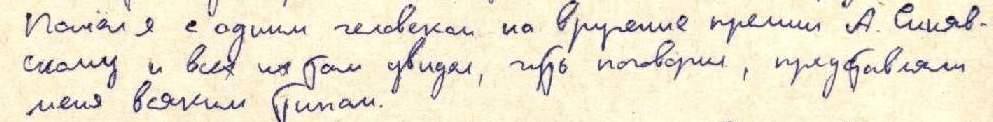 Пошёл я с одним человеком на вручение премии А. Синяв-
скому и всех их там увидел, чуть поговорил, представляли
меня всяким типам.